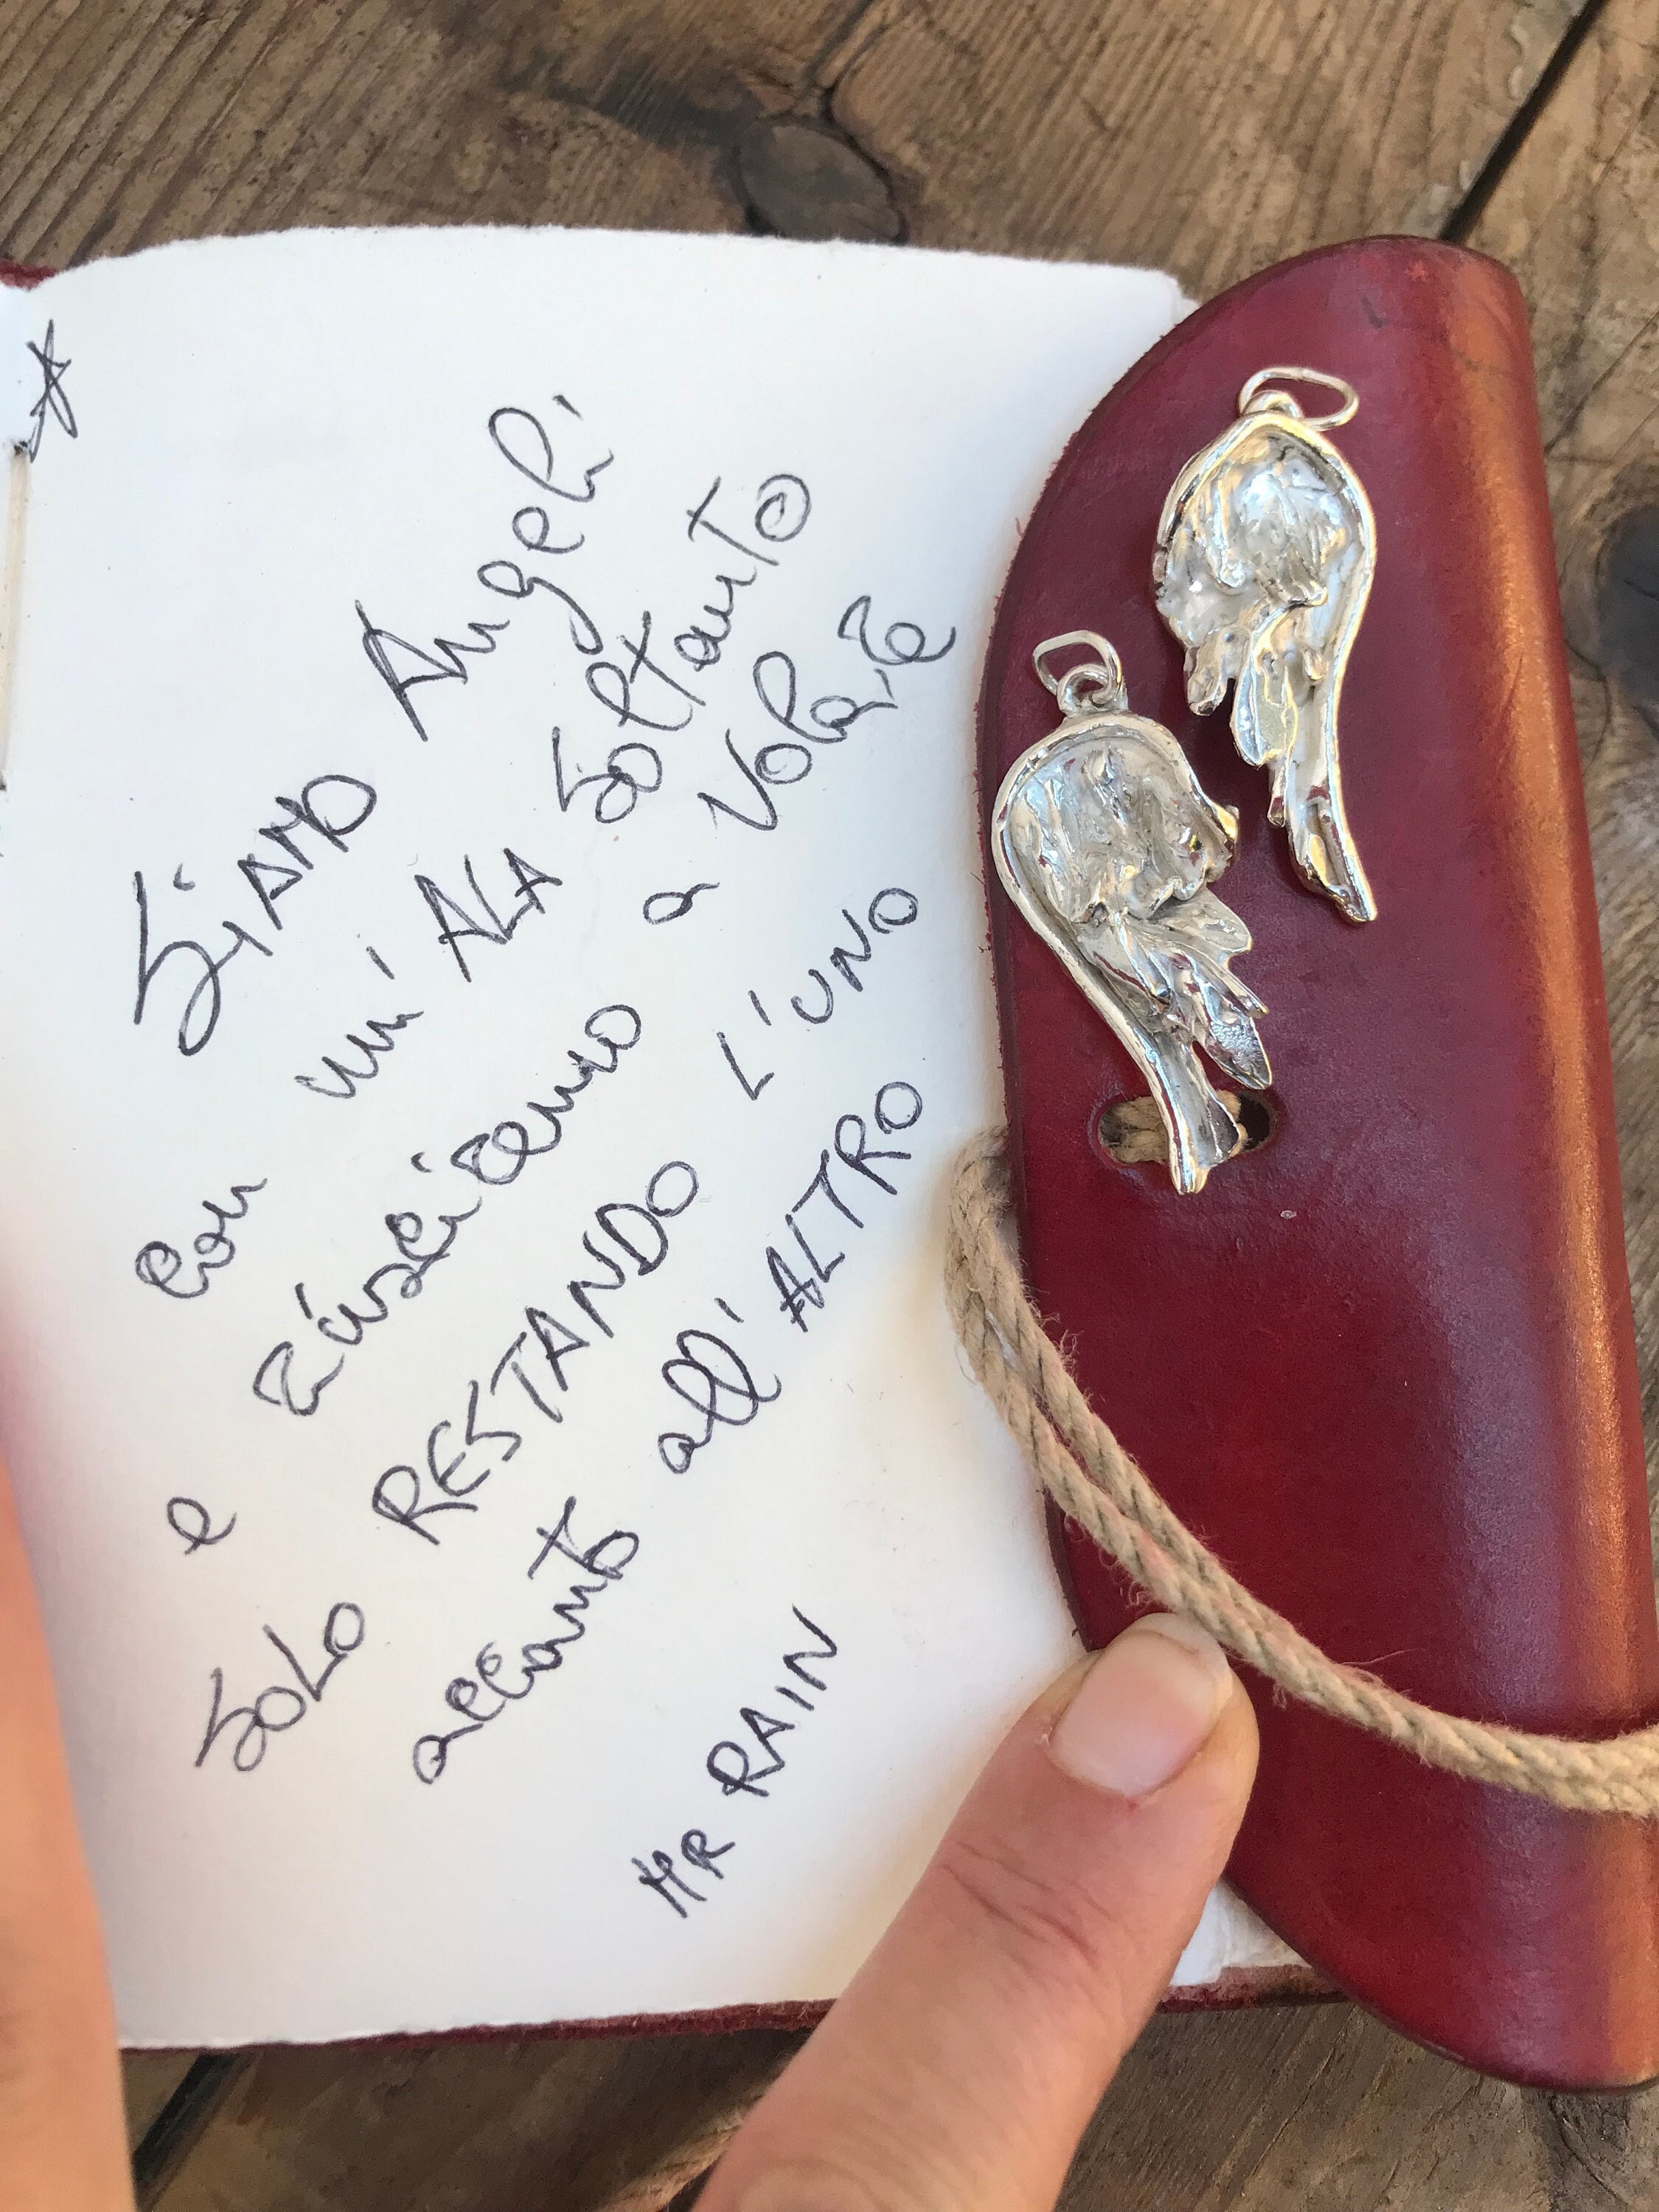 SiAMO Angeli
con un' ALA soltanto
e riusciremo a volare
SOLO RESTANDO L'UNO
accanto all'ALTRO
MR RAIN